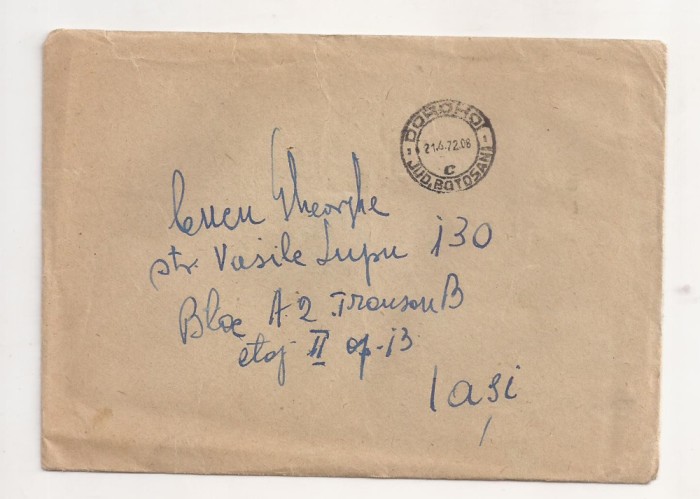 DOROHOI
21.6.72.08
C
JUD. BOTOSANI
Cucu Gheorghe
str. Vasile Lupu 130
Bloc A2 Tronson B
etaj II ap. 13
Iași